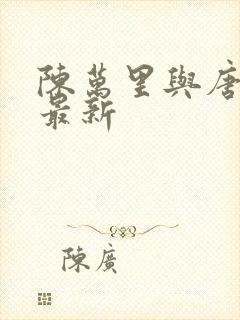 陳萬里與唐
最新
陳廣